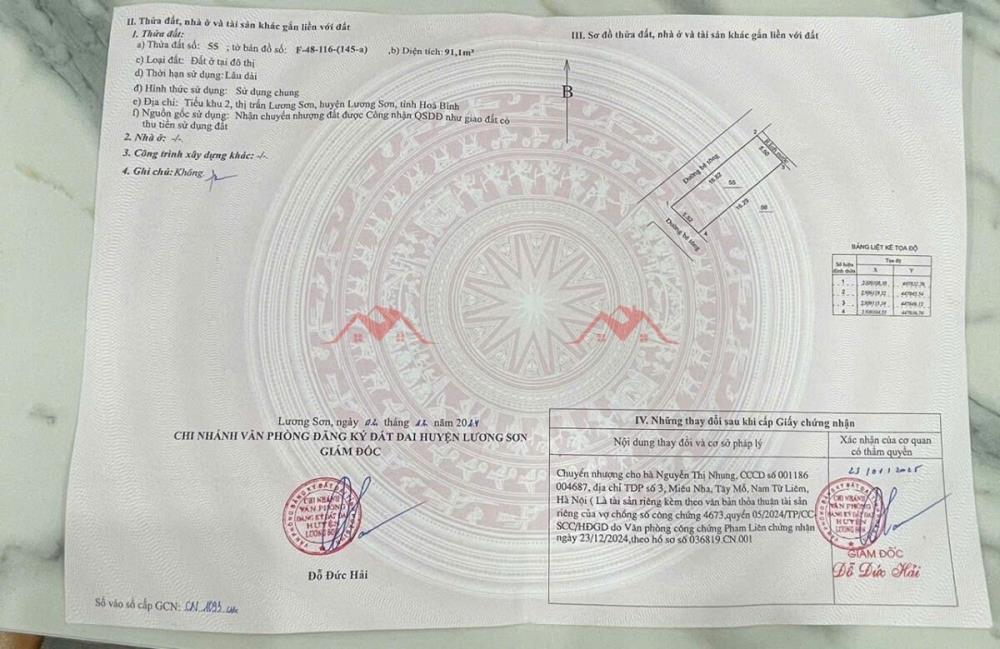 II. Thửa đất, nhà ở và tài sản khác gắn liền với đất
1. Thửa đất:
a) Thửa đất số: 55 ; tờ bản đồ số: F-48-116-(145-a) ,b) Diện tích: 91,1m²
c) Loại đất: Đất ở tại đô thị
d) Thời hạn sử dụng: Lâu dài
đ) Hình thức sử dụng: Sử dụng chung
e) Địa chỉ: Tiểu khu 2, thị trấn Lương Sơn, huyện Lương Sơn, tỉnh Hoà Bình
f) Nguồn gốc sử dụng: Nhận chuyển nhượng đất được Công nhận QSDĐ như giao đất có
thu tiền sử dụng đất
2. Nhà ở: -/-
3. Công trình xây dựng khác: -/-
4. Ghi chú: Không
Lương Sơn, ngày 02 tháng 12 năm 2024
CHI NHÁNH VĂN PHÒNG ĐĂNG KÝ ĐẤT ĐAI HUYỆN LƯƠNG SƠN
GIÁM ĐỐC
CHI NHÁNH
VĂN PHÒNG
ĐĂNG KÝ ĐẤT ĐAI
HUYỆN
LƯƠNG SƠN
Đỗ Đức Hải
Số vào sổ cấp GCN: CN 1093
III. Sơ đồ thửa đất, nhà ở và tài sản khác gắn liền với đất
B
Đường bê tông
2
5.60
16.82
55
16.29
58
1
5.52
4
Đường bê tông
BẢNG LIỆT KÊ TỌA ĐỘ
Số hiệu
đỉnh thửa
Tọa độ
X
Y
1
2
3
4
IV. Những thay đổi sau khi cấp Giấy chứng nhận
Nội dung thay đổi và cơ sở pháp lý
Xác nhận của cơ quan
có thẩm quyền
Chuyển nhượng cho bà Nguyễn Thị Nhung, CCCD số 001186
004687, địa chỉ TDP số 3, Miêu Nha, Tây Mỗ, Nam Từ Liêm,
Hà Nội ( Là tài sản riêng kèm theo văn bản thỏa thuận tài sản
riêng của vợ chồng số công chứng 4673,quyển 05/2024/TP/CC-
SCC/HĐGD do Văn phòng công chứng Phạm Liên chứng nhận
ngày 23/12/2024,theo hồ sơ số 036819.CN.001
23/01/2025
CHI NHÁNH
VĂN PHÒNG
ĐĂNG KÝ ĐẤT ĐAI
HUYỆN
LƯƠNG SƠN
GIÁM ĐỐC
Đỗ Đức Hải